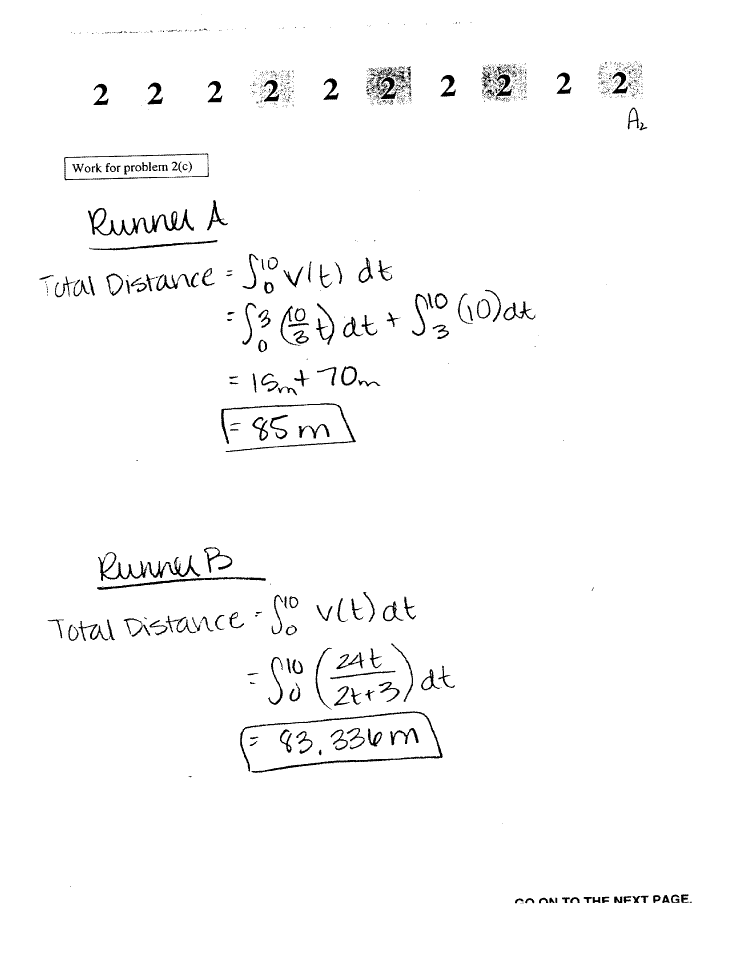 2 2 2 2 2 2 2 2 2 2
A₂
Work for problem 2(c)
Runner A
Total Distance = ∫₀¹⁰ v(t) dt
= ∫₀³ (10/3 t) dt + ∫₃¹⁰ (10) dt
= 15m + 70m
= 85 m
Runner B
Total Distance = ∫₀¹⁰ v(t) dt
= ∫₀¹⁰ (24t/2t+3) dt
= 83.336 m
GO ON TO THE NEXT PAGE.